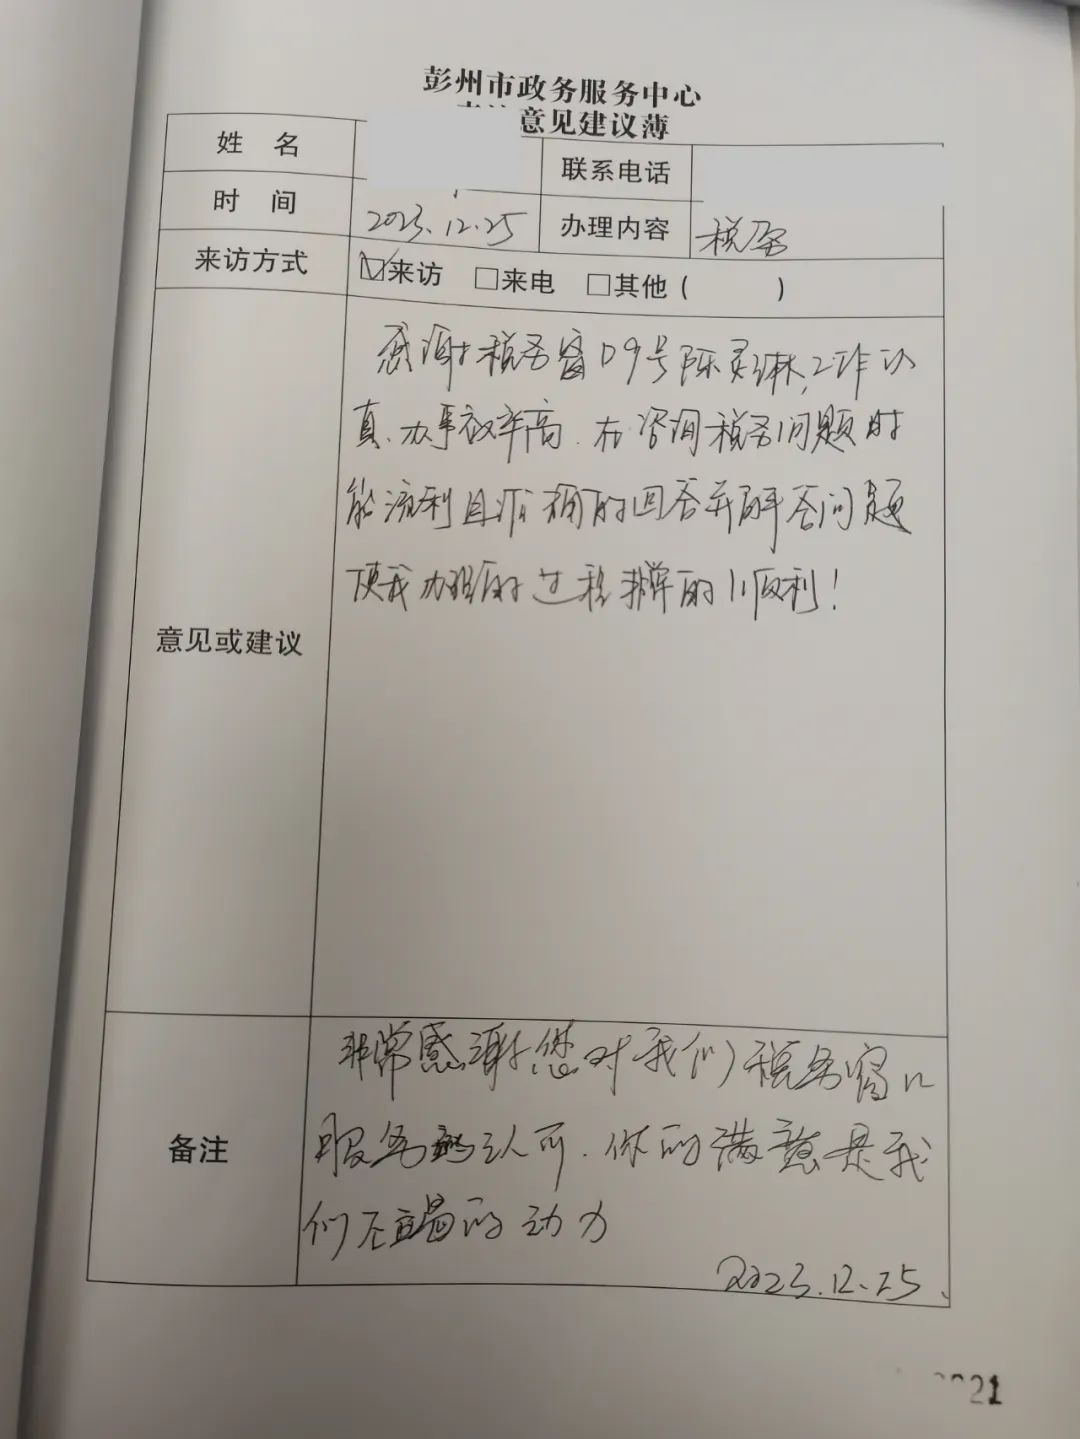 彭州市政务服务中心
意见建议薄
姓 名
联系电话
时 间 2023.12.25 办理内容 税务
来访方式 ☑来访 □来电 □其他( )
意见或建议
感谢税务窗口9号陈灵琳,工作认
真、办事效率高.在咨询税务问题时
能流利且准确的回答并解答问题
使我办理的过程非常的顺利!
备注
非常感谢您对我们税务窗口
服务的认可.你的满意是我
们不竭的动力
2023.12.25
21